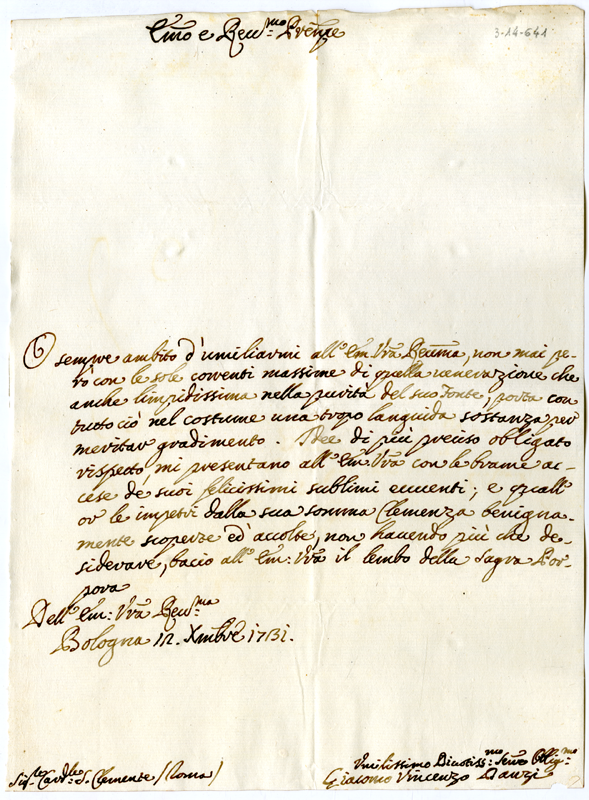 Emo e Reu.mo Prenpe
3-14-641
Ò sempre ambito d'umiliarmi all'Em: Vrã Reumma, non mai pe-
rò con le sole correnti massime di quella venerazione che
anche limpidissima nella purità del suo Fonte, porta con
tutto ciò nel costume una tropo languida sostanza per
meritar gradimento. Idee di più preciso obligato
rispetto mi presentano all'Em: Vrã con le brame ac-
cese de' suoi felicissimi sublimi euuenti; e quall'
or le impetri dalla sua somma Clemenza benigna-
mente scoperte ed' accolte, non hauendo più che de-
siderare, bacio all'Em: Vrã il lembo della Sagra Por-
pora
Dell'Em: Vrã Reu.ma
Bologna 12. Xmbre 1731.
Sig.r Card.le S. Clemente (Roma)
Vmilissimo Diuotiss.mo Seruo Oblig.mo
Giacomo Vincenzo